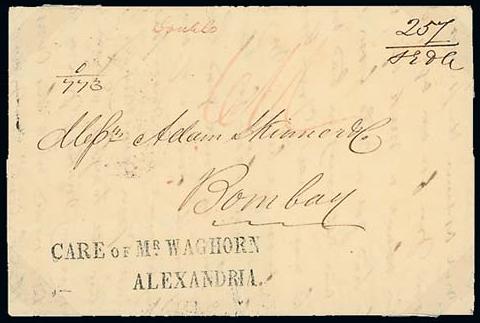 Double
257
c
773
Messrs Adam Skinner & Co.
Bombay
CARE OF MR WAGHORN
ALEXANDRIA.